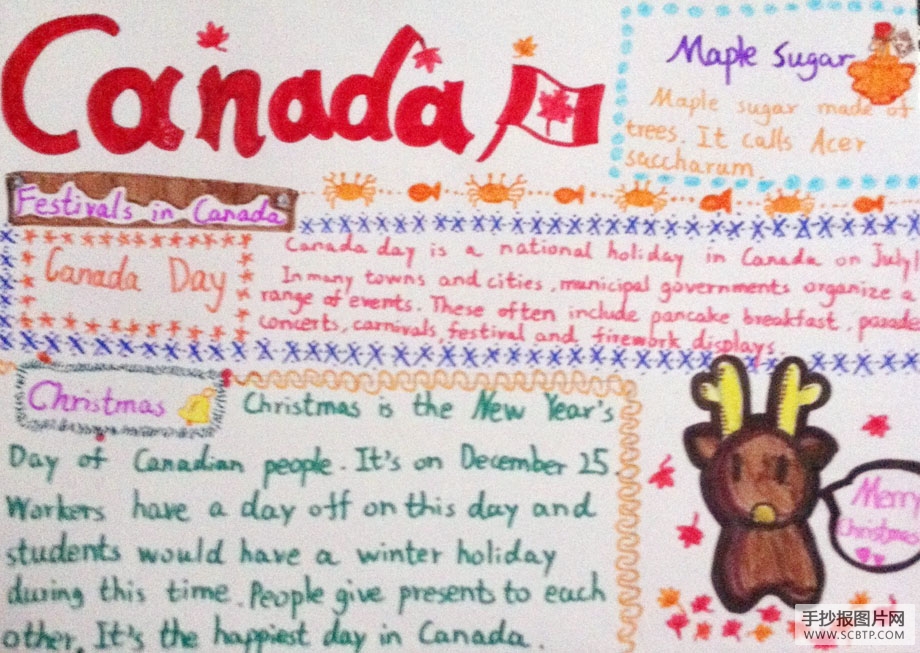 Canada
Maple sugar
Maple sugar made of
trees. It calls Acer
saccharum.
Festivals in Canada
Canada Day
Canada day is a national holiday in Canada on July1
In many towns and cities, municipal governments organize a
range of events. These often include pancake breakfast, parade
concerts, carnivals, festival and firework displays.
Christmas
Christmas is the New Year's
Day of Canadian people. It's on December 25.
Workers have a day off on this day and
students would have a winter holiday
during this time. People give present to each
other. It's the happiest day in Canada.
Merry
Christmas
手抄报图片网
WWW.SCBTP.COM